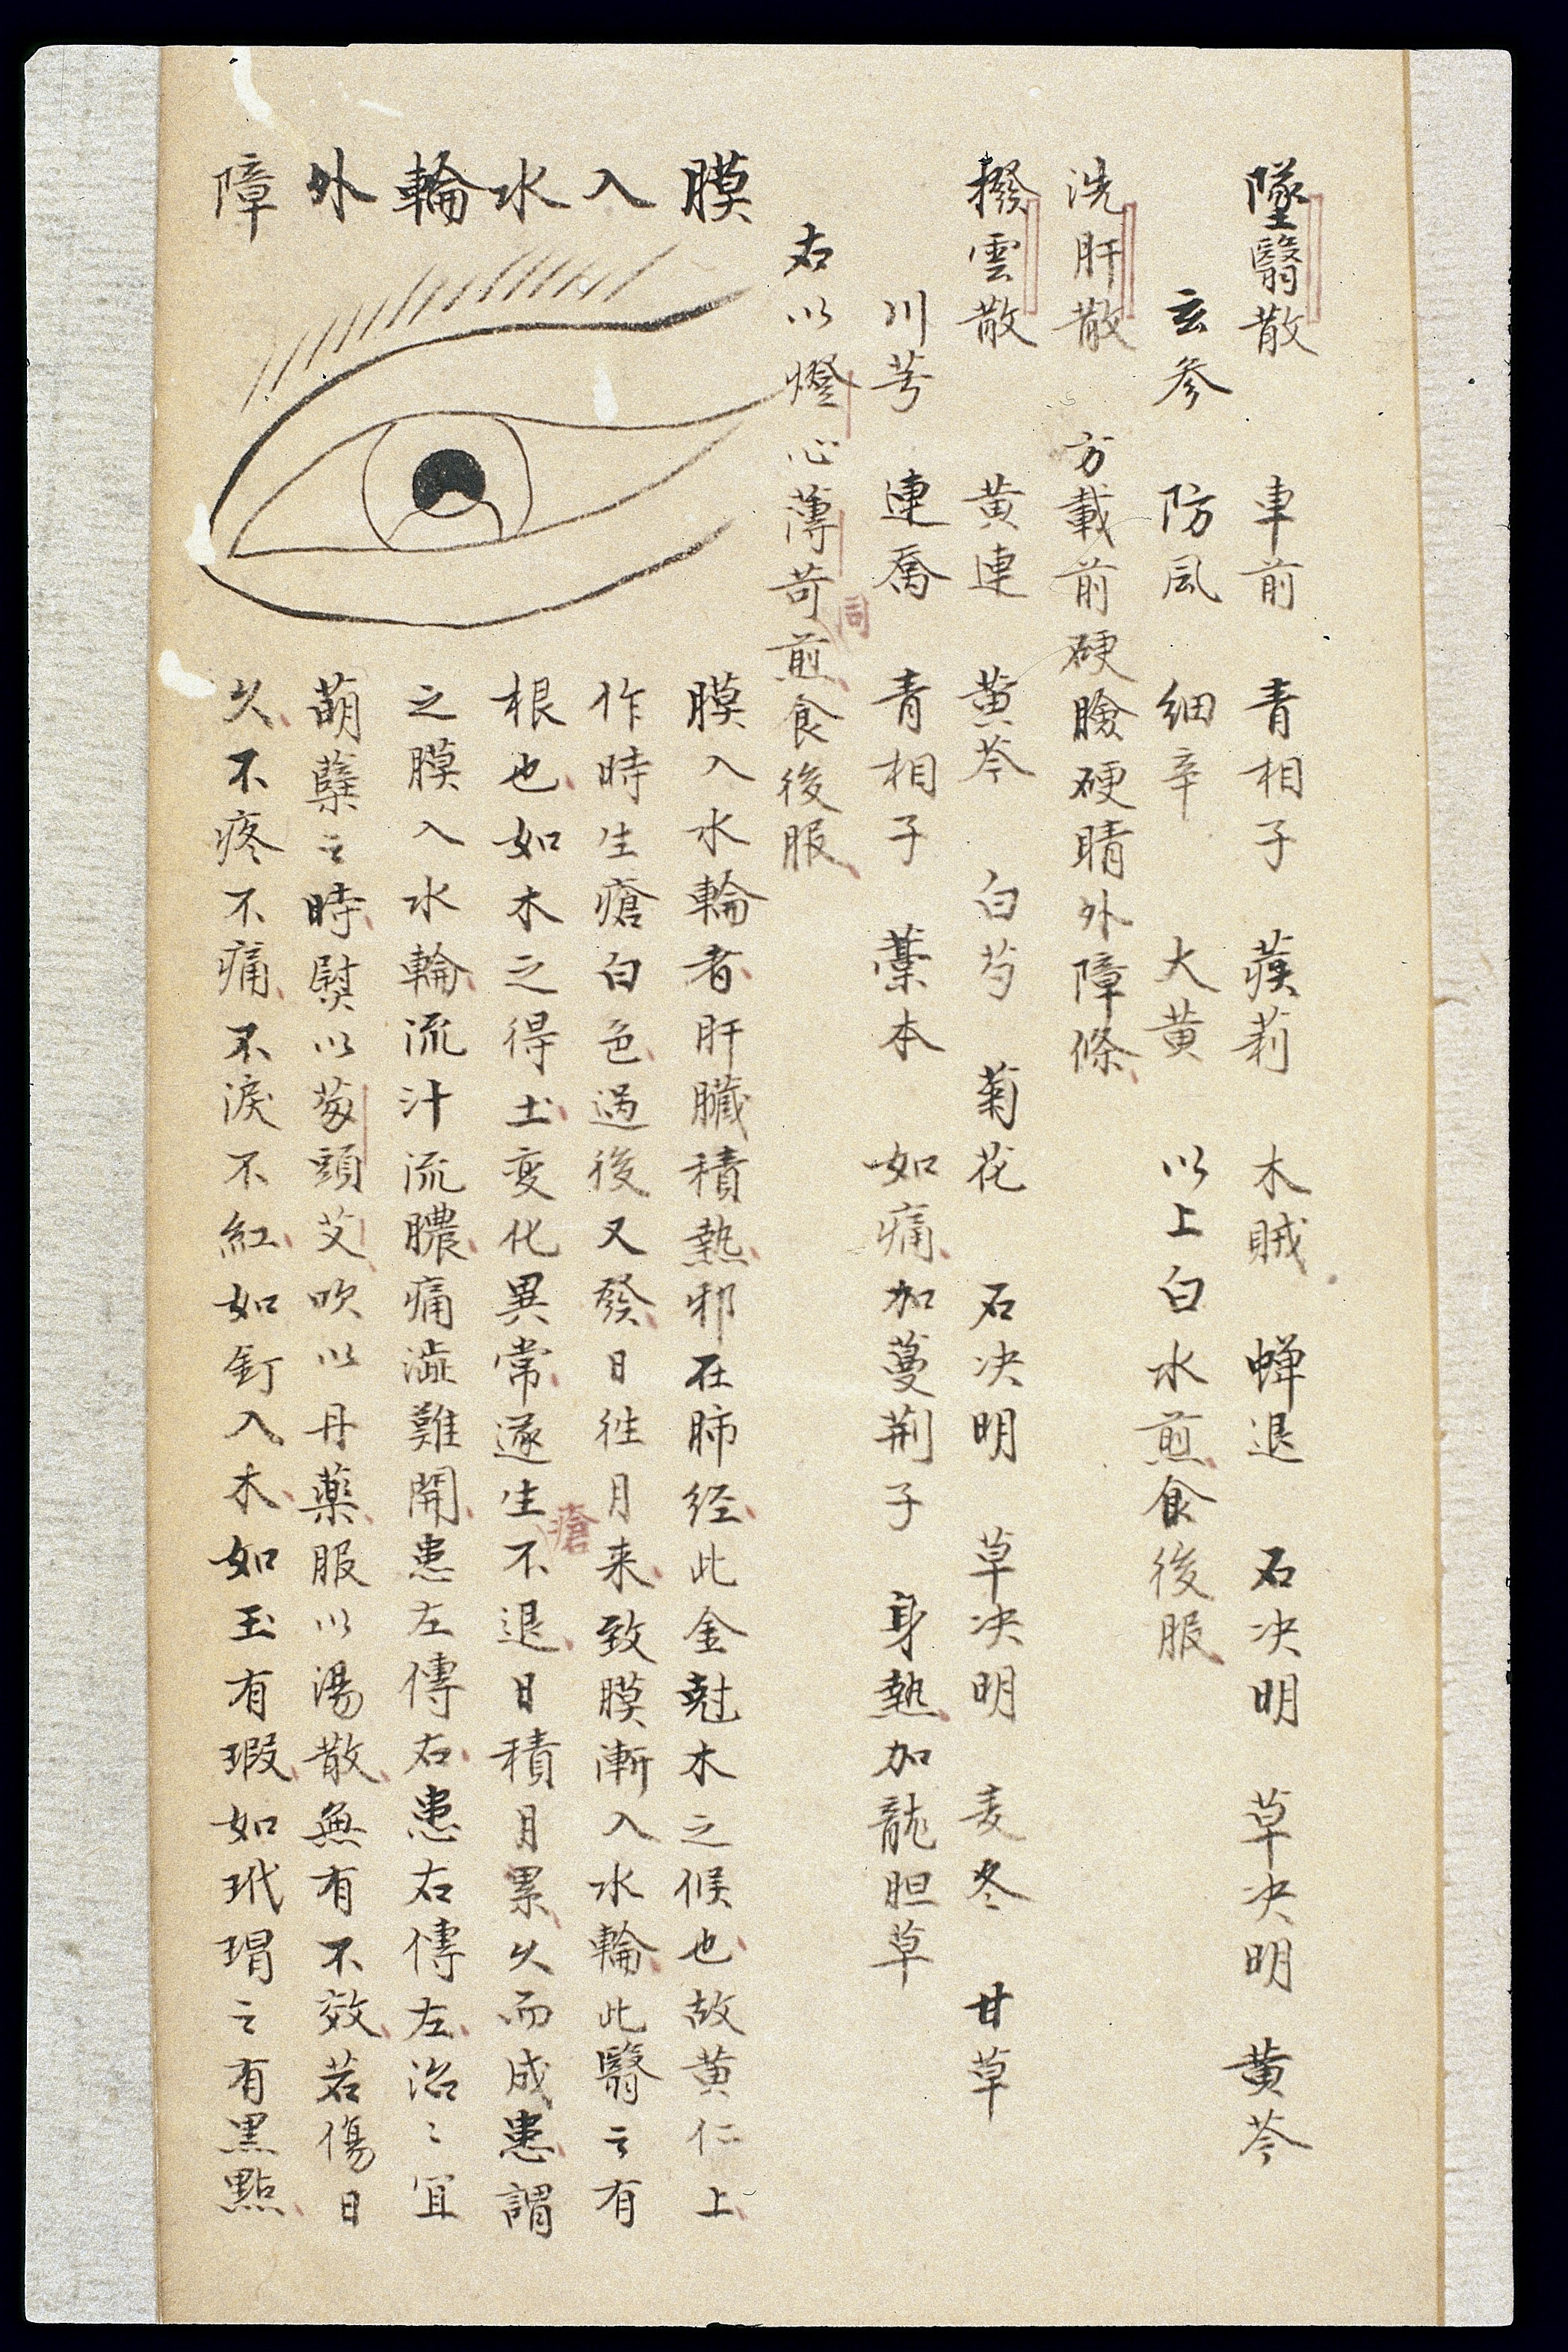 墜翳散　車前　青相子　蒺莉　木賊　蟬退　石决明　草决明　黄芩
玄参　防風　細辛　大黄　以上白水煎食後服
洗肝散　方載前硬瞼硬睛外障條
撥雲散　黄連　黄芩　白芍　菊花　石决明　草决明　麦冬　甘草
川芎　連喬　青相子　藁本　如痛加蔓荆子　身熱加龍胆草
右以燈心薄苛煎食後服
司
膜入水輪外障
膜入水輪者肝臟積熱邪在肺经此金尅木之候也故黄仁上
作時生瘡白色過後又發日徃月来致膜漸入水輪此翳云有
根也如木之得土变化異常遂生不退日積月累久而成患謂
瘡
之膜入水輪流汁流膿痛澁難開患左傳右患右傳左治〻宜
萌蘖云時熨以葱頭艾吹以丹藥服以湯散無有不效若傷日
久不疼不痛不淚不紅如釘入木如玉有瑕如玳瑁云有黒點